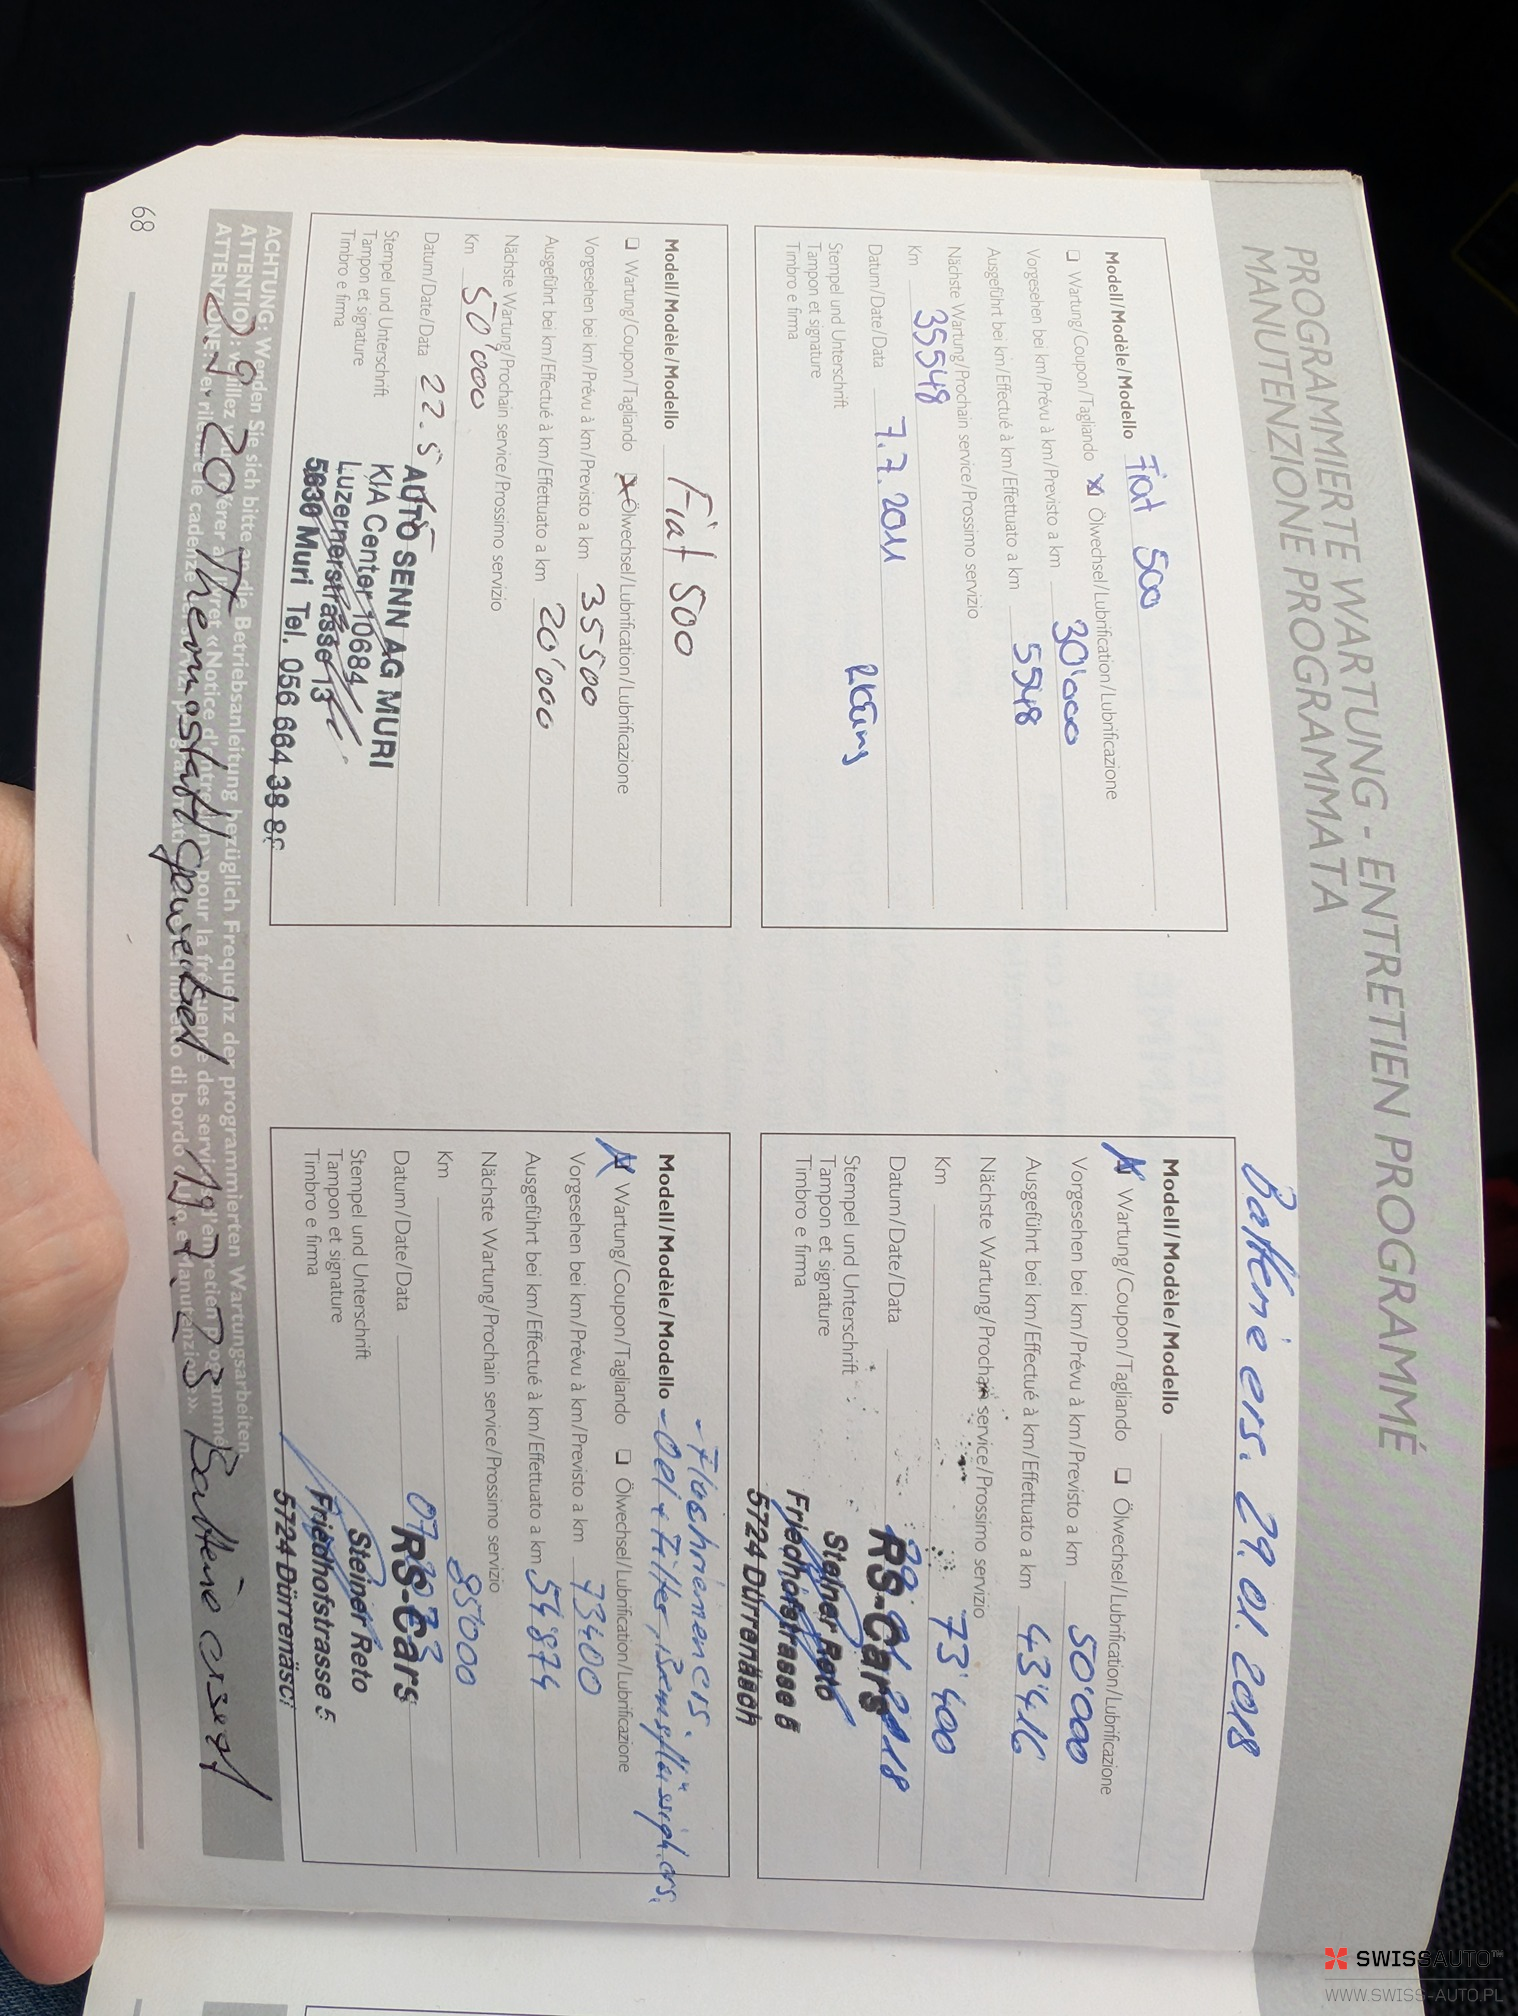 PROGRAMMIERTE WARTUNG - ENTRETIEN PROGRAMMÉ
MANUTENZIONE PROGRAMMATA
Batterie ers. 29.01.2018
Modell/Modèle/Modello Fiat 500
❑ Wartung/Coupon/Tagliando ☒ Ölwechsel/Lubrification/Lubrificazione
Vorgesehen bei km/Prévu à km/Previsto a km 30'000
Ausgeführt bei km/Effectué à km/Effettuato a km 5548
Nächste Wartung/Prochain service/Prossimo servizio
Km 35548
Datum/Date/Data 7.7.2011
Stempel und Unterschrift
Tampon et signature
Timbro e firma
Modell/Modèle/Modello
☒ Wartung/Coupon/Tagliando ❑ Ölwechsel/Lubrification/Lubrificazione
Vorgesehen bei km/Prévu à km/Previsto a km 50'000
Ausgeführt bei km/Effectué à km/Effettuato a km 43'416
Nächste Wartung/Prochain service/Prossimo servizio
Km 73'400
Datum/Date/Data 29.01.2018
RS-Cars
Stempel und Unterschrift
Tampon et signature
Timbro e firma
Steiner Reto
Friedhofstrasse 5
5724 Dürrenäsch
Modell/Modèle/Modello Fiat 500
❑ Wartung/Coupon/Tagliando ☒ Ölwechsel/Lubrification/Lubrificazione
Vorgesehen bei km/Prévu à km/Previsto a km 35500
Ausgeführt bei km/Effectué à km/Effettuato a km 20'000
Nächste Wartung/Prochain service/Prossimo servizio
Km 50'000
Datum/Date/Data 22.5
Stempel und Unterschrift
Tampon et signature
Timbro e firma
AUTO SENN AG MURI
KIA Center 10684
Luzernerstrasse 13
5630 Muri Tel. 056 664 38 8
- Flachriemen ers.
Modell/Modèle/Modello - Oel + Filter, Bremsflüssigk. ers.
☒ Wartung/Coupon/Tagliando ❑ Ölwechsel/Lubrification/Lubrificazione
Vorgesehen bei km/Prévu à km/Previsto a km 73400
Ausgeführt bei km/Effectué à km/Effettuato a km 54'874
Nächste Wartung/Prochain service/Prossimo servizio
Km 85'000
Datum/Date/Data
RS-Cars
Stempel und Unterschrift
Tampon et signature
Timbro e firma
Steiner Reto
Friedhofstrasse 5
5724 Dürrenäsc
ACHTUNG: Wenden Sie sich bitte an die Betriebsanleitung bezüglich Frequenz der programmierten Wartungsarbeiten.
ATTENTION: veuillez vous référer au livret «Notice d'entretien» pour la fréquence des services d'entretien programmé
ATTENZIONE: per rilevare le cadenze dei servizi programmati vedere il libretto di bordo «Uso e Manutenzione».
2.9.20 Thermostart gewechselt 19.7.23 Batterie ersetzt
68
SWISSAUTO™
WWW.SWISS-AUTO.PL